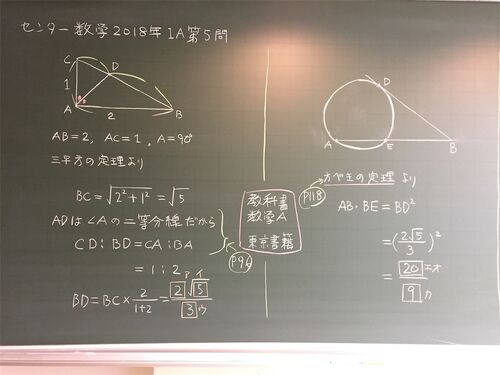 センター数学2018年ⅠA第5問
C
D
1
A
2
B
AB=2, AC=1, A=90°
三平方の定理より
BC=√2²+1²=√5
ADは∠Aの二等分線だから
CD:BD=CA:BA
=1:2
アイ
BD=BC×2/(1+2)=2√5/3ウ
教科書
数学A
東京書籍
P96
P118
D
A
E
B
方べきの定理より
AB・BE=BD²
=(2√5/3)²
=20/9
エオ
カ